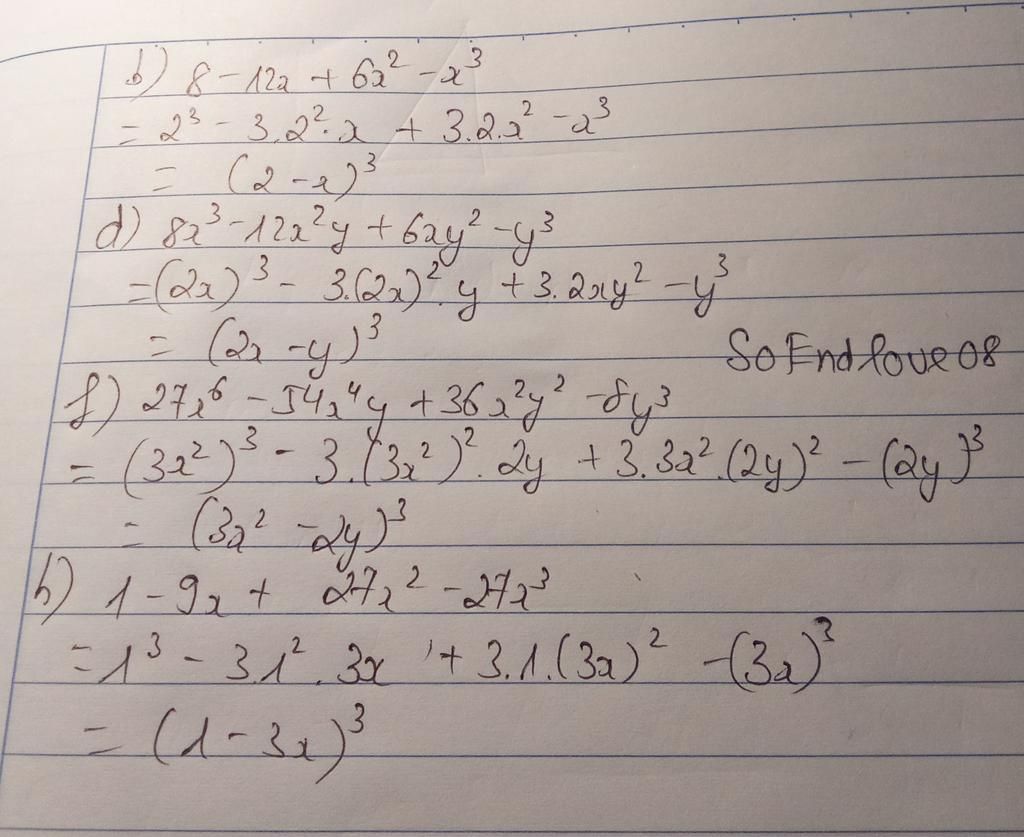 b) 8 - 12x + 6x² - x³
= 2³ - 3.2².x + 3.2.x² - x³
= (2 - x)³
d) 8x³ - 12x²y + 6xy² - y³
= (2x)³ - 3.(2x)².y + 3.2xy² - y³
= (2x - y)³
SoEndlove08
f) 27x⁶ - 54x⁴y + 36x²y² - 8y³
= (3x²)³ - 3.(3x²)².2y + 3.3x².(2y)² - (2y)³
= (3x² - 2y)³
h) 1 - 9x + 27x² - 27x³
= 1³ - 3.1².3x + 3.1.(3x)² - (3x)³
= (1 - 3x)³